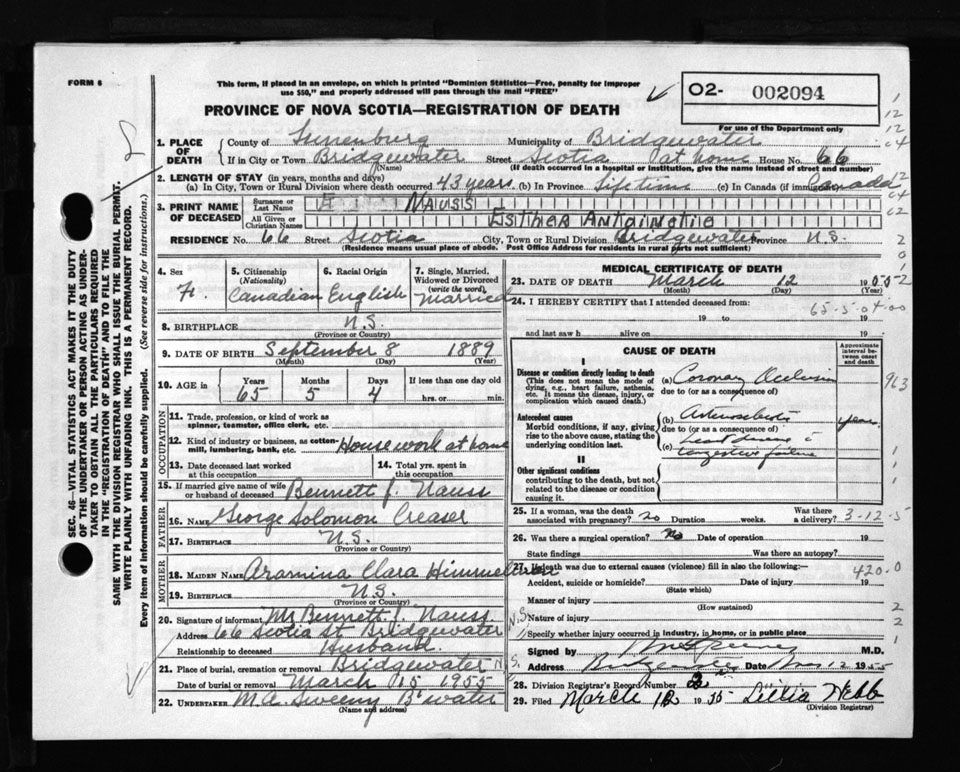 FORM 6
This form, if placed in an envelope, on which is printed "Dominion Statistics—Free, penalty for improper
use $50," and properly addressed will pass through the mail "FREE"
PROVINCE OF NOVA SCOTIA—REGISTRATION OF DEATH
O2- 002094
For use of the Department only
SEC. 46—VITAL STATISTICS ACT MAKES IT THE DUTY
OF THE UNDERTAKER OR PERSON ACTING AS UNDER-
TAKER TO OBTAIN ALL THE PARTICULARS REQUIRED
IN THE "REGISTRATION OF DEATH" AND TO FILE THE
SAME WITH THE DIVISION REGISTRAR WHO SHALL ISSUE THE BURIAL PERMIT.
WRITE PLAINLY WITH UNFADING INK. THIS IS A PERMANENT RECORD.
Every item of information should be carefully supplied. (See reverse side for instructions.)
1. PLACE OF DEATH
County of Lunenburg Municipality of Bridgewater
If in City or Town Bridgewater Street Scotia at home House No. 66
(Name) (If death occurred in a hospital or institution, give the name instead of street and number)
2. LENGTH OF STAY (in years, months and days)
(a) In City, Town or Rural Division where death occurred 43 years (b) In Province Lifetime (c) In Canada (if immigrant) Canada
3. PRINT NAME OF DECEASED
Surname or Last Name Nauss
All Given or Christian Names Esther Antoinette
RESIDENCE No. 66 Street Scotia City, Town or Rural Division Bridgewater Province N.S.
(Residence means usual place of abode. Post Office Address for residents in rural parts not sufficient)
4. Sex F.
5. Citizenship (Nationality) Canadian
6. Racial Origin English
7. Single, Married, Widowed or Divorced (write the word) Married
8. BIRTHPLACE N.S.
(Province or Country)
9. DATE OF BIRTH September 8 1889
(Month) (Day) (Year)
10. AGE in Years 65 Months 5 Days 4 If less than one day old
hrs. or min.
OCCUPATION
11. Trade, profession, or kind of work as
spinner, teamster, office clerk, etc.
12. Kind of industry or business, as cotton-
mill, lumbering, bank, etc. House work at home
13. Date deceased last worked
at this occupation
14. Total yrs. spent in
this occupation
15. If married give name of wife
or husband of deceased Bennett J. Nauss
FATHER
16. NAME George Solomon Creaser
17. BIRTHPLACE N.S.
(Province or Country)
MOTHER
18. MAIDEN NAME Aramina Clara Himmelman
19. BIRTHPLACE N.S.
(Province or Country)
20. Signature of informant Mr Bennett J. Nauss
Address 66 Scotia St Bridgewater N.S.
Relationship to deceased Husband
21. Place of burial, cremation or removal Bridgewater N.S.
Date of burial or removal March 15 1955
22. UNDERTAKER M A Sweeny B'water
(Name and address)
MEDICAL CERTIFICATE OF DEATH
23. DATE OF DEATH March 12 1955
(Month) (Day) (Year)
24. I HEREBY CERTIFY that I attended deceased from:
19 to 19
and last saw h alive on 19
CAUSE OF DEATH
Approximate interval between onset and death
I
Disease or condition directly leading to death
(This does not mean the mode of
dying, e.g., heart failure, asthenia,
etc. It means the disease, injury, or
complication which caused death.)
(a) Coronary Occlusion
due to (or as a consequence of)
Antecedent causes
Morbid conditions, if any, giving
rise to the above cause, stating the
underlying condition last.
(b) Arteriosclerotic years
due to (or as a consequence of)
(c) heart disease c
congestive failure
II
Other significant conditions
contributing to the death, but not
related to the disease or condition
causing it.
25. If a woman, was the death
associated with pregnancy? no Duration weeks. Was there a delivery?
3-12-5
26. Was there a surgical operation? No Date of operation 19
State findings Was there an autopsy?
27. If death was due to external causes (violence) fill in also the following:
420.0
Accident, suicide or homicide? Date of injury 19
(State which)
Manner of injury
(How sustained)
Nature of injury
Specify whether injury occurred in industry, in home, or in public place
Signed by M.D.
Address Bridgewater Date Mar 12 1955
28. Division Registrar's Record Number
29. Filed March 12 1955 Lillia Webb
(Division Registrar)